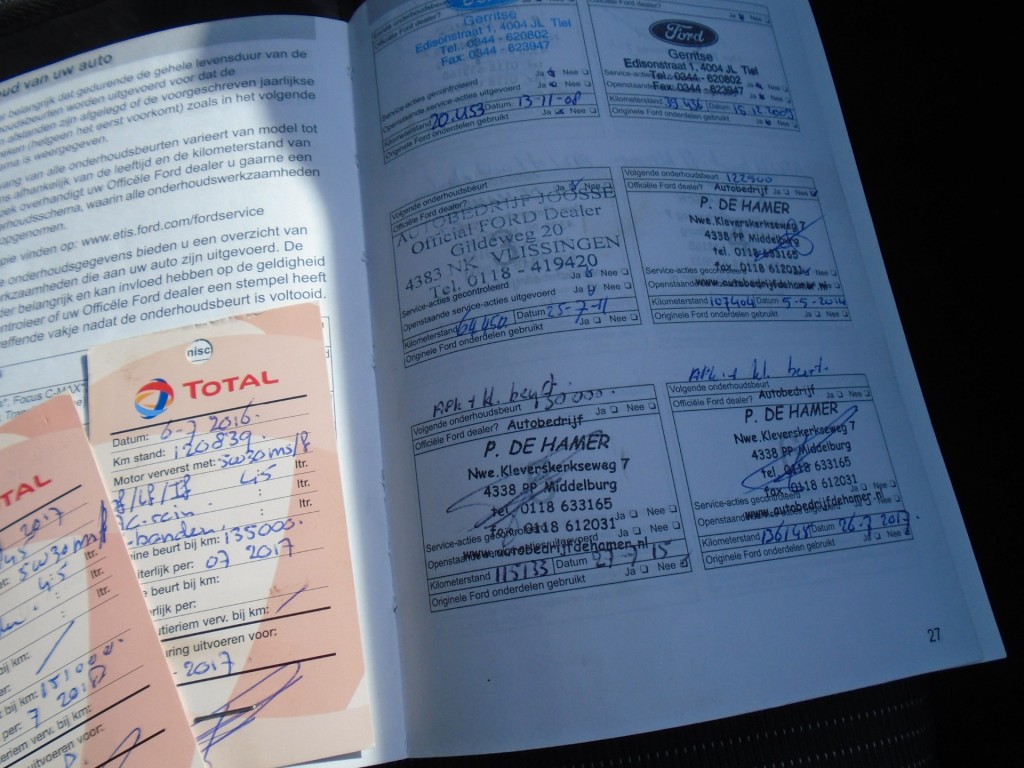 oud van uw auto
belangrijk dat gedurende de gehele levensduur van de
houdsbeurten worden uitgevoerd voor dat de
afstanden zijn afgelegd of de voorgeschreven jaarlijkse
(hetgeen het eerst voorkomt) zoals in het volgende
is weergegeven.
van alle onderhoudsbeurten varieert van model tot
afhankelijk van de leeftijd en de kilometerstand van
overhandigt uw Officële Ford dealer u gaarne een
houdsschema, waarin alle onderhoudswerkzaamheden
opgenomen.
vinden op: www.etis.ford.com/fordservice
onderhoudsgegevens bieden u een overzicht van
die aan uw auto zijn uitgevoerd. De
belangrijk en kan invloed hebben op de geldigheid
controleer of uw Officële Ford dealer een stempel heeft
vakje nadat de onderhoudsbeurt is voltooid.
Focus C-MAX
nisc
TOTAL
Datum: 6-7 2016.
Km stand: 120839.
Motor ververst met: 5W30
: 4.5 ltr.
: ltr.
: ltr.
-banden
beurt bij km: 135000.
uiterlijk per: 07 2017
beurt bij km:
per:
verv. bij km:
uitvoeren voor:
2017
TAL
2017
5W30
4.5 ltr.
: ltr.
bij km:
bij km: 151000.
per: 7 2018
verv. bij km:
uitvoeren voor:
Officiële Ford dealer?
Gerritse
Edisonstraat 1, 4004 JL Tiel
Tel. 0344 - 620802
Fax. 0344 - 623947
Service-acties gecontroleerd Ja Nee
Openstaande service-acties uitgevoerd Ja Nee
Kilometerstand 20.453 Datum 13-11-08
Originele Ford onderdelen gebruikt Ja Nee
Officiële Ford dealer? Ja Nee
Ford
Gerritse
Edisonstraat 1, 4004 JL Tiel
Tel. 0344 - 620802
Fax. 0344 - 623947
Service-acties gecontroleerd Ja Nee
Openstaande
Kilometerstand 39.436 Datum 15.12.2009
Originele Ford onderdelen gebruikt Ja Nee
Volgende onderhoudsbeurt
Officiële Ford dealer? Ja Nee
AUTOBEDRIJF JOOSSE
Official FORD Dealer
Gildeweg 20
4383 NK VLISSINGEN
Tel. 0118 - 419420
Service-acties gecontroleerd Ja Nee
Openstaande service-acties uitgevoerd Ja Nee
Kilometerstand 64450 Datum 25-7-11
Originele Ford onderdelen gebruikt Ja Nee
Volgende onderhoudsbeurt 122400
Officiële Ford dealer? Autobedrijf Ja Nee
P. DE HAMER
Nwe.Kleverskerkseweg 7
4338 PP Middelburg
tel. 0118 633165
fax. 0118 612031
Service-acties gecontroleerd Ja Nee
www.autobedrijfdehamer.nl
Kilometerstand 107404 Datum 5-5-2014
Originele Ford onderdelen gebruikt Ja Nee
Apk + kl. beurt.
Volgende onderhoudsbeurt 130000.
Officiële Ford dealer? Autobedrijf Ja Nee
P. DE HAMER
Nwe.Kleverskerkseweg 7
4338 PP Middelburg
tel. 0118 633165
fax. 0118 612031
Service-acties gecontroleerd Ja Nee
www.autobedrijfdehamer.nl
Openstaande service-acties uitgevoerd Ja Nee
Kilometerstand 115133 Datum 29-7-15
Originele Ford onderdelen gebruikt Ja Nee
Apk + kl. beurt.
Volgende onderhoudsbeurt
Officiële Ford dealer? Autobedrijf Ja Nee
P. DE HAMER
Nwe.Kleverskerkseweg 7
4338 PP Middelburg
tel. 0118 633165
fax. 0118 612031
Service-acties gecontroleerd Ja Nee
www.autobedrijfdehamer.nl
Openstaande Ja Nee
Kilometerstand 136145 Datum 26-7 2017
Originele Ford onderdelen gebruikt Ja Nee
27